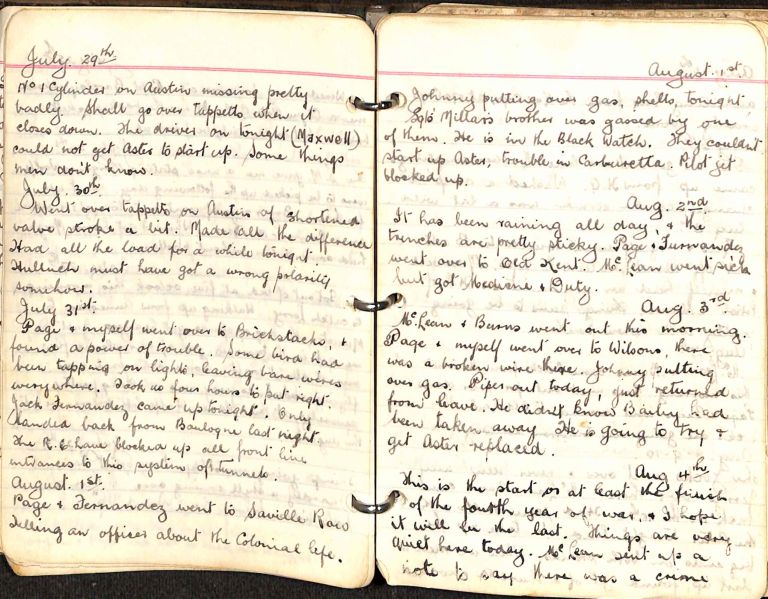 July. 29th
No 1 Cylinder on Austin missing pretty
badly. Shall go over tappetts when it
closes down. The driver on tonight (Maxwell)
could not get Aster to start up. Some things
men don't know.
July. 30th
Went over tappetts on Austin & shortened
valve strope a bit. Made all the difference
Had all the load for a while tonight.
Hulluch must have got a wrong polarity
somehow.
July 31st.
Page & myself went over to Brickstacks, &
found a power of trouble. Some bird had
been tapping on lights, leaving bare wires
everywhere. Took us four hours to put right.
Jack Fernandez came up tonight. Only
landed back from Boulogne last night.
The R.E have blocked up all front line
entrances to this system of tunnels.
August. 1st.
Page & Fernandez went to Saville Row
Telling an officer about the Colonial life.
August. 1st.
Johnny putting over gas, shells, tonight
Millar's brother was gassed by one
of them. He is in the Black Watch. They couldn't
start up Aster, trouble in Carburetta. Pilot jet
blocked up.
Aug. 2nd.
It has been raining all day, & the
trenches are pretty sticky. Page & Furnandez
went over to Old Kent. McLean went sick
but got Medicine & Duty.
Aug. 3rd.
McLean & Burns went out this morning.
Page & myself went over to Wilsons, there
was a broken wire there. Johnny putting
over gas. Piper out today, just returned
from leave. He didn't know had
been taken away. He is going to try &
get Aster replaced.
Aug 4th
This is the start or at least the finish
of the fourth year of war, & I hope
it will be the last. Things are very
quiet here today. McLean sent up a
note to say there was a crime